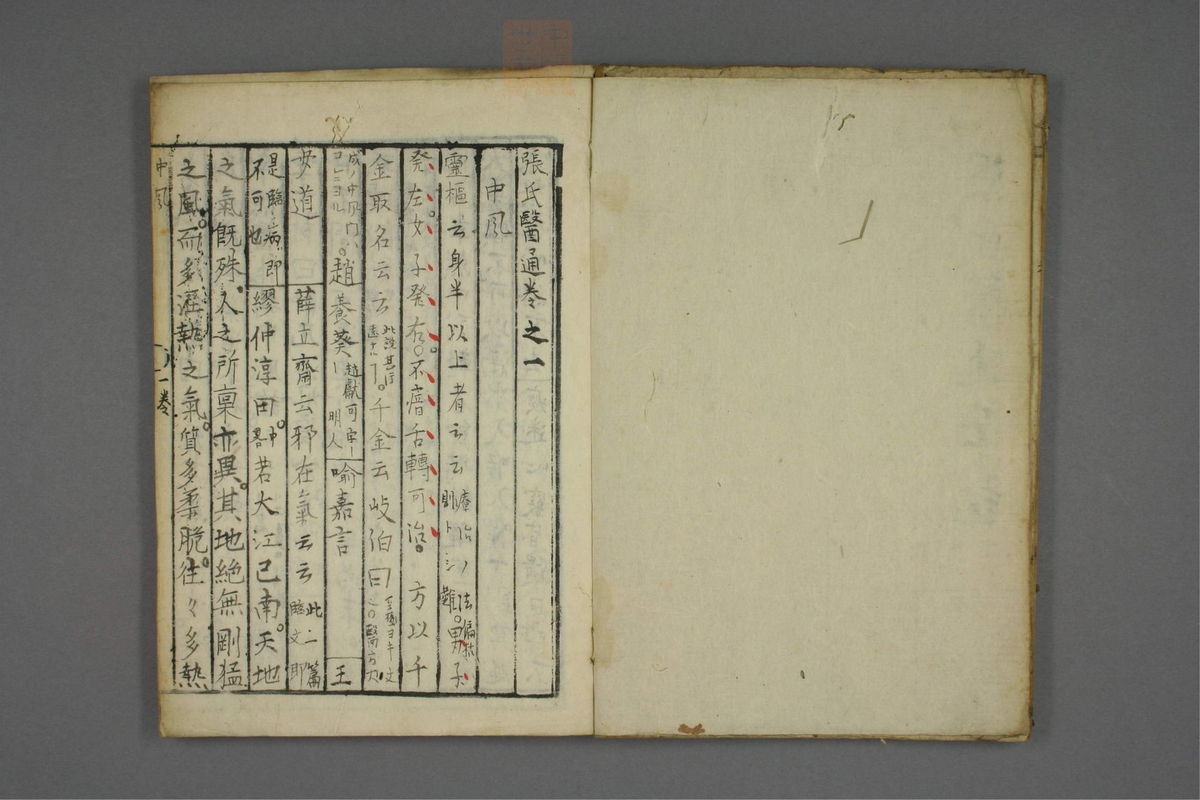 張氏醫通卷之一
中風
靈樞云身半以上者云云 男子
發左女子發右不瘖舌轉可治 方以千
金取名云云 千金云岐伯曰
趙養葵 趙獻可字 明人 喻嘉言 王
安道 薛立齋云邪在氣云云 此二篇臨文即
是臨病即不可也 繆仲淳曰 若大江已南天地
之氣既殊人之所稟亦異其地絕無剛猛
之風而多濕熱之氣質多柔脆往々多熱
中風 一卷